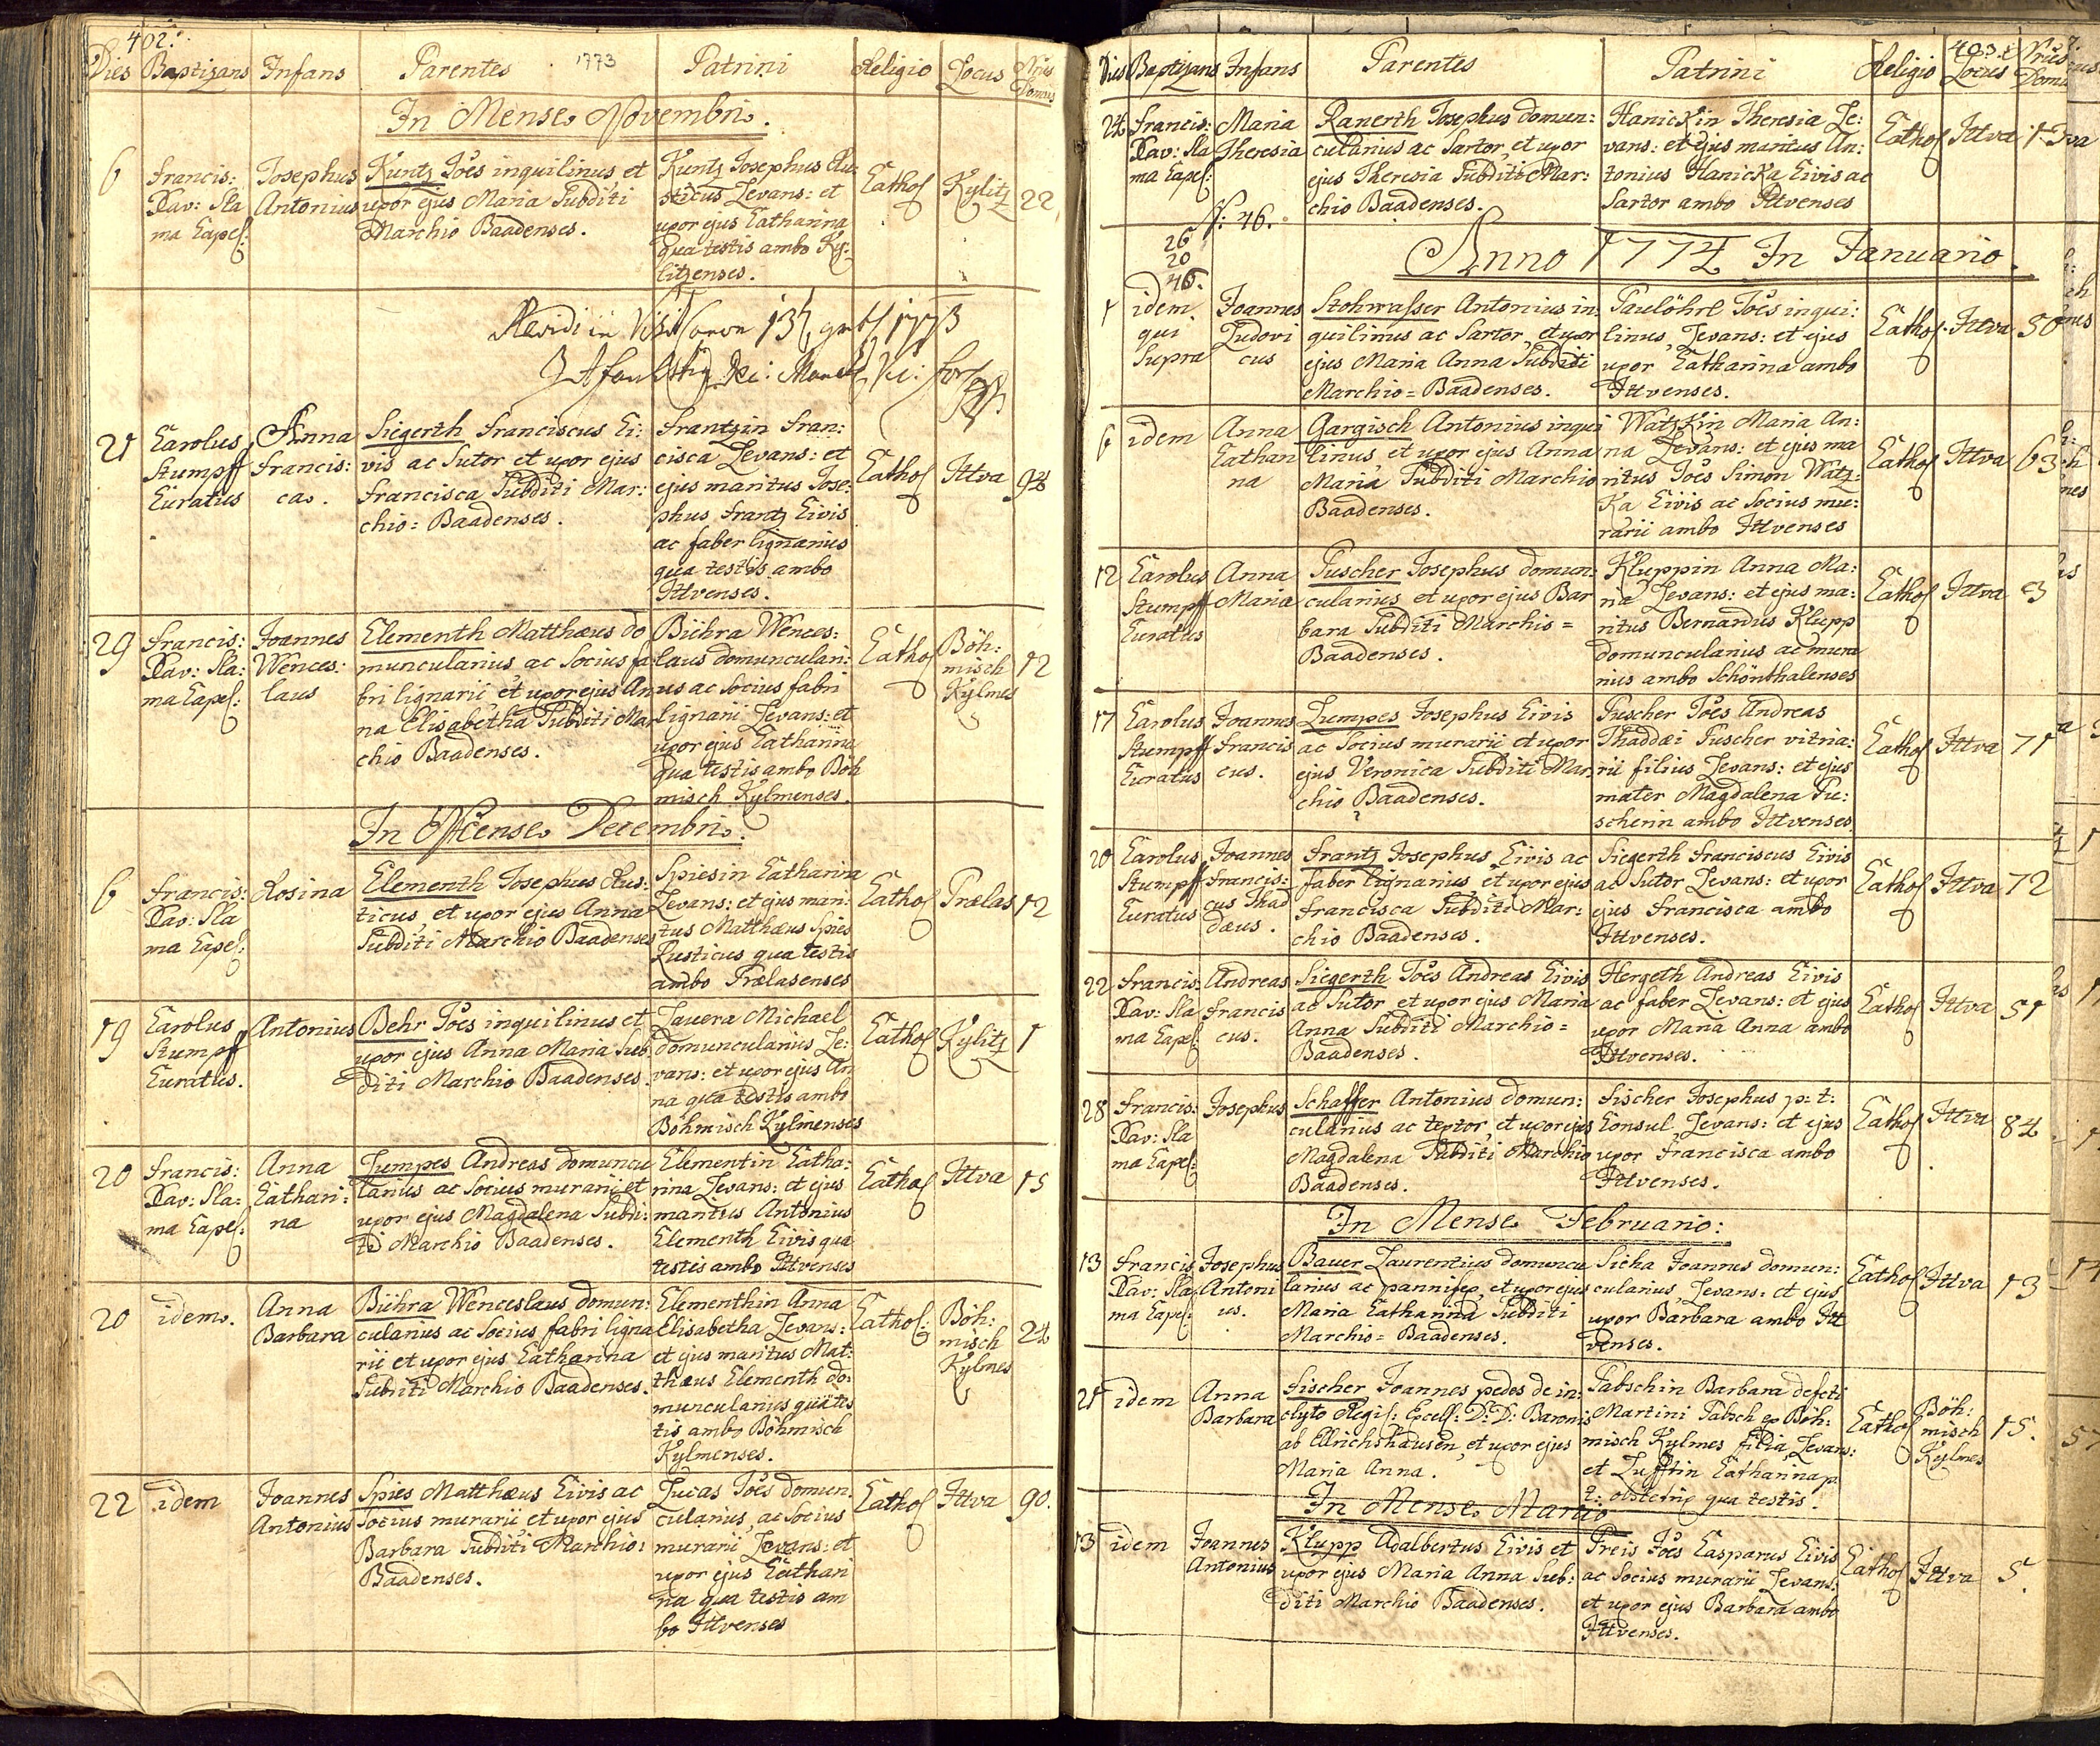 402.
Dies Baptizans Infans Parentes 1773 Patrini Religio Locus Nrus Domus
In Mense Novembri.
6 Francis: Xav: Sla ma Capel:
Josephus Antonius
Kuntz Joês inquilinus et
uxor ejus Maria Subditi
Marchio Baadenses.
Kuntz Josephus Ru:
sticus Levans: et
uxor ejus Catharina
qua testis ambo Ky:
litzenses.
Cathol Kylitz 22
Revidi in
1773
21 Carolus Stumpff Curatus
Anna Francis: ca.
Siegerth Franciscus Ci:
vis ac Sutor et uxor ejus
Francisca Subditi Mar:
chio = Baadenses.
Frantzin Fran:
cisca Levans: et
ejus maritus Jose:
phus Frantz Civis
ac faber lignarius
qua testis ambo
Ittvenses.
Cathol Ittva 94
29 Francis: Xav: Sla: ma Capel:
Joannes Wences: laus
Clementh Matthæus do
muncularius ac Socius fa
bri lignarii et uxor ejus An
na Elisabetha Subditi Mar
chio Baadenses.
Bühra Wences:
laus domunculari:
us ac Socius fabri
lignarii Levans: et
uxor ejus Catharina
qua testis ambo Böh
misch Kylmenses.
Cathol Böh: misch Kylmes 12
In Mense Decembri.
6 Francis: Xav: Sla ma Capel:
Rosina
Clementh Josephus Rus:
ticus, et uxor ejus Anna
Subditi Marchio Baadenses
Spiesin Catharina
Levans: et ejus mari:
tus Matthæus Spies
Rusticus qua testis
ambo Prælasenses
Cathol Prælas 12
19 Carolus Stumpff Curatus.
Antonius
Behr Joês inquilinus et
uxor ejus Anna Maria Sub
diti Marchio Baadenses.
Tauera Michael
domuncularius Le:
vans: et uxor ejus An
na qua testis ambo
Böhmisch Kylmenses
Cathol Kylitz 1
20 Francis: Xav: Sla: ma Capel:
Anna Cathari: na
Lumpes Andreas domuncu
larius ac Socius murarii et
uxor ejus Magdalena Subdi:
ti Marchio Baadenses.
Clementin Catha:
rina Levans: et ejus
maritus Antonius
Clementh Civis qua
testis ambo Ittvenses
Cathol Ittva 15
20 idem.
Anna Barbara
Bühra Wenceslaus domun:
cularius ac Socius fabri ligna
rii et uxor ejus Catharina
Subditi Marchio Baadenses.
Clementhin Anna
Elisabetha Levans:
et ejus maritus Mat:
thæus Clementh do:
muncularius qua tes
tis ambo Böhmisch
Kylmenses.
Cathol: Böh: misch Kylmes 24
22 idem
Joannes Antonius
Spies Matthæus Civis ac
Socius murarii et uxor ejus
Barbara Subditi Marchio:
Baadenses.
Lucas Joês domun
cularius, ac Socius
murarii Levans: et
uxor ejus Cathari
na qua testis am
bo Ittvenses
Cathol Ittva 90.
403.
Dies Baptizans Infans Parentes Patrini Religio Locus Nrus Domus
24 Francis: Xav: Sla ma Capel:
Maria Theresia
Ranerth Josephus domun:
cularius ac Sartor, et uxor
ejus Theresia Subditi Mar:
chio Baadenses.
Hanickin Theresia Le:
vans: et ejus maritus An:
tonius Hanicka Civis ac
Sartor ambo Ittvenses
Cathol Ittva 1
N: 46.
26
20
46.
Anno 1774 In Januario.
1 idem qui Supra
Joannes Ludovi cus
Stohwasser Antonius in:
quilinus ac Sartor, et uxor
ejus Maria Anna Subditi
Marchio = Baadenses.
Paulöhrl Joês inqui:
linus, Levans: et ejus
uxor Catharina ambo
Ittvenses.
Cathol. Ittva 50
6 idem
Anna Cathari na
Gargisch Antonius inqui
linus, et uxor ejus Anna
Maria Subditi Marchio
Baadenses.
Watzkin Maria An:
na Levans: et ejus ma
ritus Joês Simon Watz:
ka Civis ac Socius mu:
rarii ambo Ittvenses
Cathol Ittva 63
12 Carolus Stumpff Curatus
Anna Maria
Puscher Josephus domun:
cularius et uxor ejus Bar
bara Subditi Marchio =
Baadenses.
Kluppin Anna Ma:
ria Levans: et ejus ma:
ritus Bernardus Klupp
domuncularius ac mura
rius ambo Schönthalenses
Cathol Ittva 3
17 Carolus Stumpff Curatus
Joannes Francis cus.
Lumpes Josephus Civis
ac Socius murarii et uxor
ejus Veronica Subditi Mar
chio Baadenses.
Puscher Joês Andreas
Thaddæi Puscher vitria:
rii filius Levans: et ejus
mater Magdalena Pu:
scherin ambo Ittvenses
Cathol Ittva 71
20 Carolus Stumpff Curatus
Joannes Francis: cus Thad dæus.
Frantz Josephus Civis ac
faber lignarius, et uxor ejus
Francisca Subditi Mar:
chio Baadenses.
Siegerth Franciscus Civis
ac Sutor Levans: et uxor
ejus Francisca ambo
Ittvenses.
Cathol Ittva 72
22 Francis: Xav: Sla ma Capel:
Andreas Francis cus.
Siegerth Joês Andreas Civis
ac Sutor et uxor ejus Maria
Anna Subditi Marchio =
Baadenses.
Hergeth Andreas Civis
ac faber Levans: et ejus
uxor Maria Anna ambo
Ittvenses.
Cathol Ittva 51
28 Francis: Xav: Sla ma Capel:
Josephus
Schaffer Antonius domun:
cularius ac textor, et uxor ejus
Magdalena Subditi Marchio
Baadenses.
Fischer Josephus p: t:
Consul, Levans: et ejus
uxor Francisca ambo
Ittvenses.
Cathol Ittva 84
In Mense Februario:
13 Francis Xav: Sla ma Capel:
Josephus Antoni us.
Bauer Laurentius domuncu
larius ac pannifex, et uxor ejus
Maria Catharina Subditi
Marchio = Baadenses.
Sicha Joannes domun:
cularius, Levans: et ejus
uxor Barbara ambo Itt
venses.
Cathol Ittva 13
21 idem
Anna Barbara
Fischer Joannes pedes de in:
clyto Regis: Excell: D: D: Baronis
ab Elrichshausen, et uxor ejus
Maria Anna.
Pabschin Barbara defcti
Martini Pabsch ex Böh:
misch Kylmes filia, Levans:
et Lufftin Catharina p
t: obstetrix qua testis.
Cathol Böh: misch Kylmes 15.
In Mense Martio
13 idem
Joannes Antonius
Klupp Adalbertus Civis et
uxor ejus Maria Anna Sub:
diti Marchio Baadenses.
Preis Joês Casparus Civis
ac Socius murarii Levans:
et uxor ejus Barbara ambo
Ittvenses.
Cathol Ittva 5.